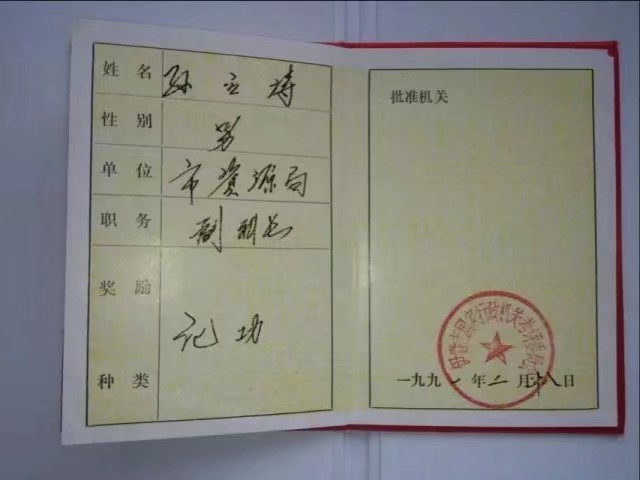 姓名 孙立涛
性别 男
单位 市资源局
职务
奖励种类 记功
批准机关
一九九一年二月十八日